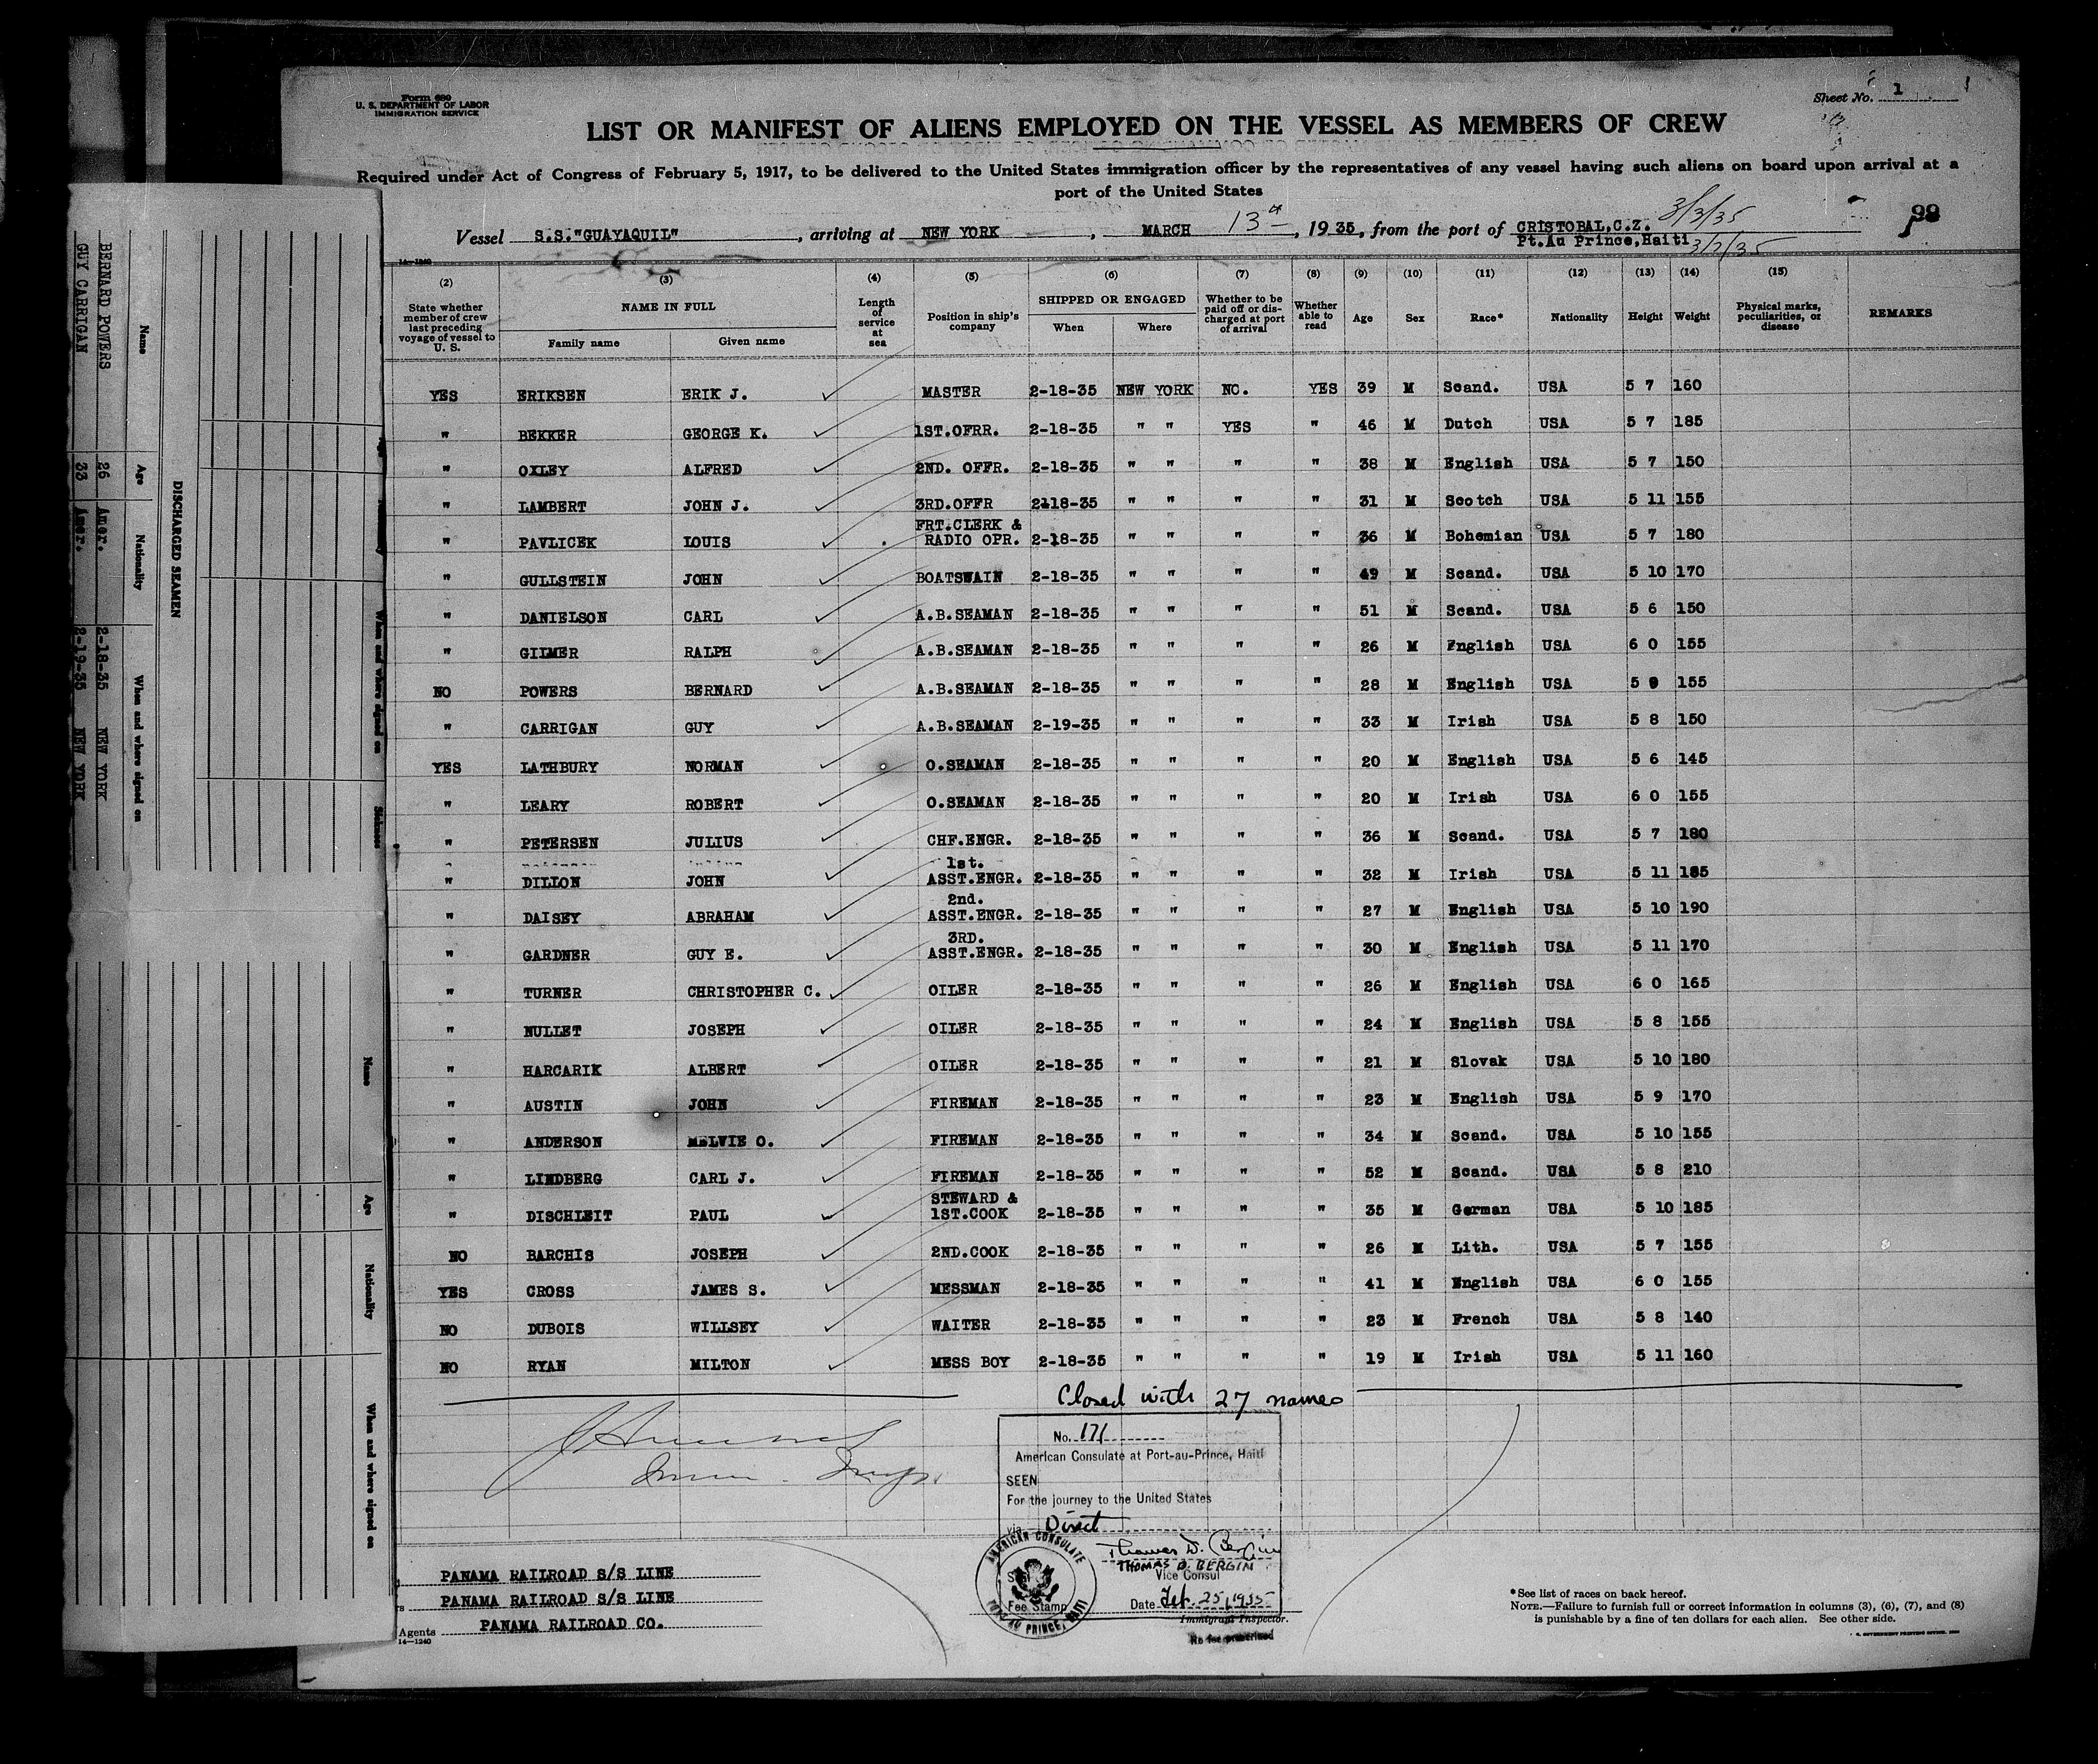 Form 680
U. S. DEPARTMENT OF LABOR
IMMIGRATION SERVICE
Sheet No. 1
LIST OR MANIFEST OF ALIENS EMPLOYED ON THE VESSEL AS MEMBERS OF CREW
Required under Act of Congress of February 5, 1917, to be delivered to the United States immigration officer by the representatives of any vessel having such aliens on board upon arrival at a
port of the United States
Vessel S.S."GUAYAQUIL", arriving at NEW YORK, MARCH 13th, 1935, from the port of CRISTOBAL,C.Z. 3/3/35
Pt.Au Prince,Haiti
99
14—1240
(2) State whether member of crew last preceding voyage of vessel to U. S. (3) NAME IN FULL Family name Given name (4) Length of service at sea (5) Position in ship's company (6) SHIPPED OR ENGAGED When Where (7) Whether to be paid off or discharged at port of arrival (8) Whether able to read (9) Age (10) Sex (11) Race* (12) Nationality (13) Height (14) Weight (15) Physical marks, peculiarities, or disease REMARKS
YES ERIKSEN ERIK J. MASTER 2-18-35 NEW YORK NO. YES 39 M Scand. USA 5 7 160
" BEKKER GEORGE K. 1ST.OFRR. 2-18-35 " " YES " 46 M Dutch USA 5 7 185
" OXLEY ALFRED 2ND. OFFR. 2-18-35 " " " " 38 M English USA 5 7 150
" LAMBERT JOHN J. 3RD.OFFR 2-18-35 " " " " 31 M Scotch USA 5 11 155
" PAVLICEK LOUIS FRT.CLERK & RADIO OPR. 2-18-35 " " " " 36 M Bohemian USA 5 7 180
" GULLSTEIN JOHN BOATSWAIN 2-18-35 " " " " 49 M Scand. USA 5 10 170
" DANIELSON CARL A.B.SEAMAN 2-18-35 " " " " 51 M Scand. USA 5 6 150
" GILMER RALPH A.B.SEAMAN 2-18-35 " " " " 26 M English USA 6 0 155
NO POWERS BERNARD A.B.SEAMAN 2-18-35 " " " " 28 M English USA 5 9 155
" CARRIGAN GUY A.B.SEAMAN 2-19-35 " " " " 33 M Irish USA 5 8 150
YES LATHBURY NORMAN O.SEAMAN 2-18-35 " " " " 20 M English USA 5 6 145
" LEARY ROBERT O.SEAMAN 2-18-35 " " " " 20 M Irish USA 6 0 155
" PETERSEN JULIUS CHF.ENGR. 2-18-35 " " " " 36 M Scand. USA 5 7 180
" DILLON JOHN 1st. ASST.ENGR. 2-18-35 " " " " 32 M Irish USA 5 11 185
" DAISEY ABRAHAM 2nd. ASST.ENGR. 2-18-35 " " " " 27 M English USA 5 10 190
" GARDNER GUY E. 3RD. ASST.ENGR. 2-18-35 " " " " 30 M English USA 5 11 170
" TURNER CHRISTOPHER C. OILER 2-18-35 " " " " 26 M English USA 6 0 165
" NULLET JOSEPH OILER 2-18-35 " " " " 24 M English USA 5 8 155
" HARCARIK ALBERT OILER 2-18-35 " " " " 21 M Slovak USA 5 10 180
" AUSTIN JOHN FIREMAN 2-18-35 " " " " 23 M English USA 5 9 170
" ANDERSON MELVIE O. FIREMAN 2-18-35 " " " " 34 M Scand. USA 5 10 155
" LINDBERG CARL J. FIREMAN 2-18-35 " " " " 52 M Scand. USA 5 8 210
" DISCHLEIT PAUL STEWARD & 1ST.COOK 2-18-35 " " " " 35 M German USA 5 10 185
NO BARCHIS JOSEPH 2ND.COOK 2-18-35 " " " " 26 M Lith. USA 5 7 155
YES CROSS JAMES S. MESSMAN 2-18-35 " " " " 41 M English USA 6 0 155
NO DUBOIS WILLSEY WAITER 2-18-35 " " " " 23 M French USA 5 8 140
NO RYAN MILTON MESS BOY 2-18-35 " " " " 19 M Irish USA 5 11 160
Closed with 27 names
No. 171
American Consulate at Port-au-Prince, Haiti
SEEN
For the journey to the United States
via Direct
Thomas D. Bergin
THOMAS D. BERGIN
Vice Consul
Date Feb. 25, 1935
Fee Stamp
AMERICAN CONSULATE
PORT AU PRINCE, HAITI
Immigrant Inspector.
No fee prescribed
PANAMA RAILROAD S/S LINE
PANAMA RAILROAD S/S LINE
Agents PANAMA RAILROAD CO.
14—1240
*See list of races on back hereof.
NOTE.—Failure to furnish full or correct information in columns (3), (6), (7), and (8)
is punishable by a fine of ten dollars for each alien. See other side.
DISCHARGED SEAMEN
Name Age Nationality When and where signed on
BERNARD POWERS 26 Amer. 2-18-35 NEW YORK
GUY CARRIGAN 33 Amer. 2-19-35 NEW YORK
When and where signed on
Sickness
Name Age Nationality When and where signed on